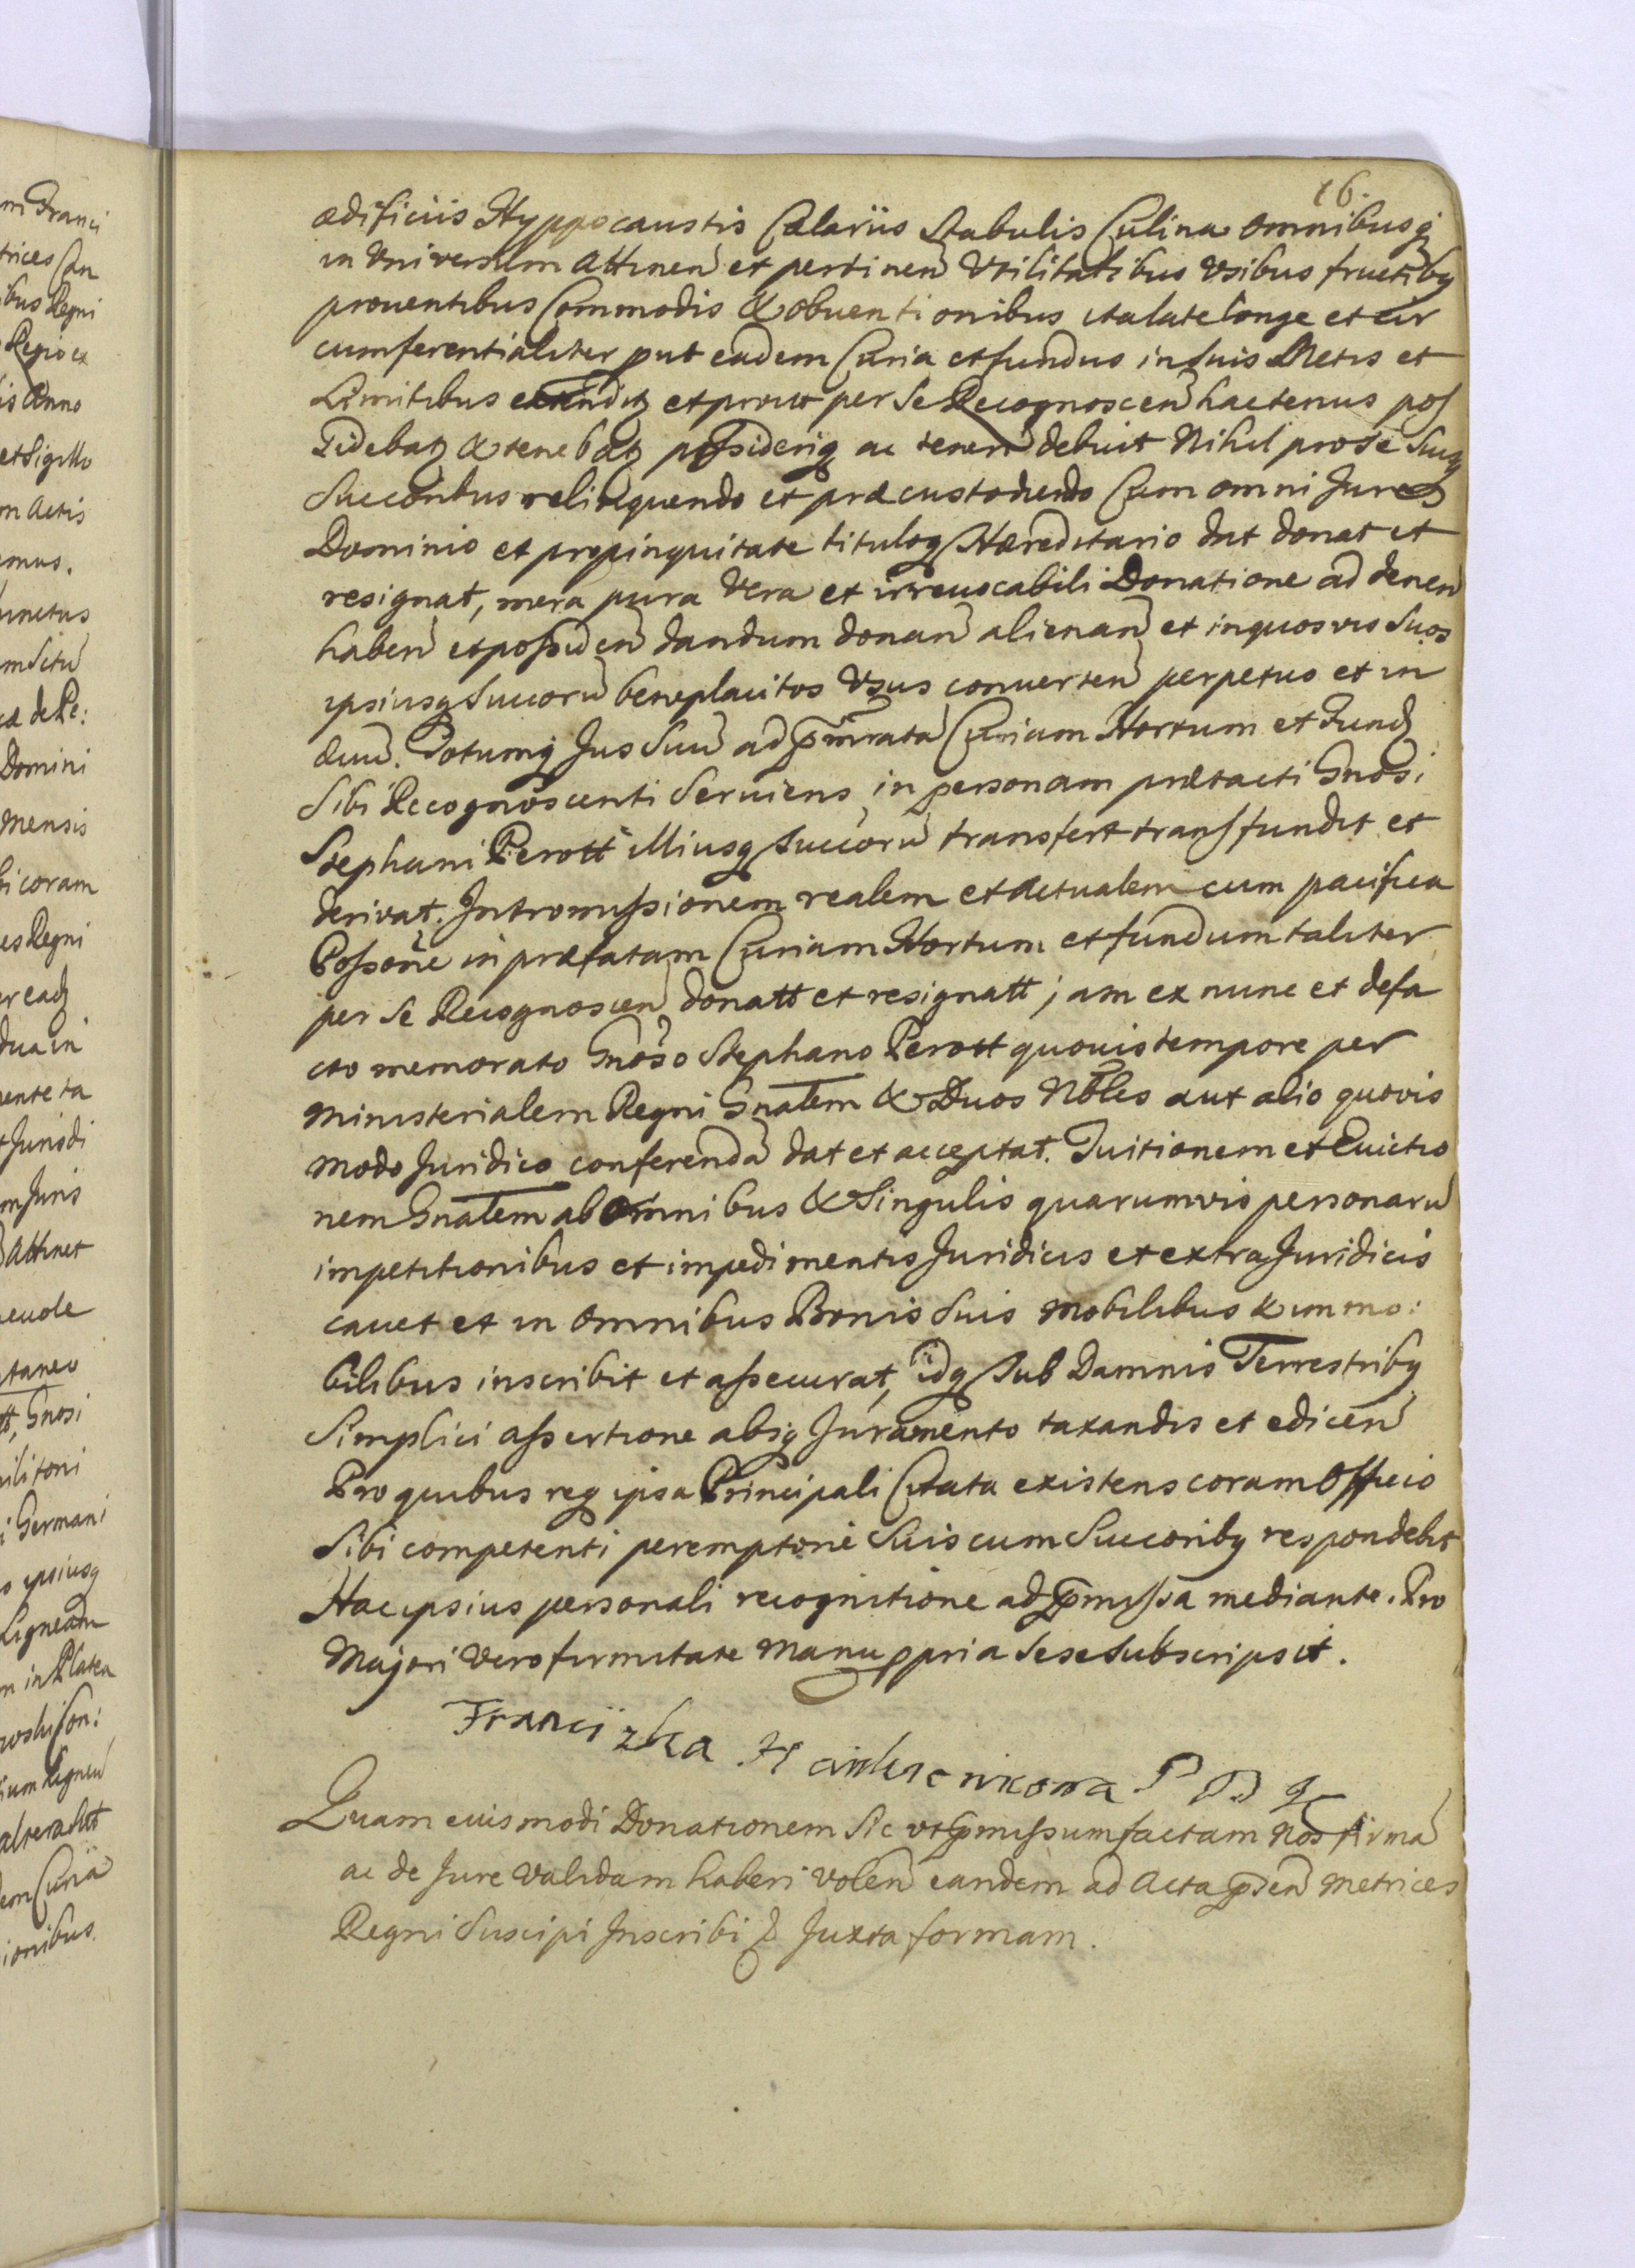 16.
ædificiis Hyppocaustis Cælariis Stabulis Culina Omnibusq
in Vniversum Attinen et pertinen Vtilitatibus Vsibus fructiby
prouentibus Commodis & obuentionibus ita late longe et cir
cumferentialiter put eadem Curia et fundus in suis Metis et
Limitibus extenditz et prout per Se Recognoscen hactenus pos
sidebatz & tenebatz possideriq ac teneri debuit Nihil pro se Suisq
Succoribus relinquendo et præcustodiendo Cum omni Jure
Dominio et propinquitate tituloq Hæreditario dat donat et
resignat, mera pura Vera et irreuocabili Donatione ad tenen
haben et possiden dandum donan alienan et in quosvis Suos
ipsiusq Succorũ beneplacitos Vsus conuerten perpetuo et in
æuũ. Totumq Jus Suũ ad pmrata Curiam Hortum et Fund
Sibi Recognoscenti Seruiens in personam prætacti Gnosi
Stephani Perott illiusq Succorũ transfert transfundit et
derivat. Intromissionem realem et Actualem cum pacifica
Possone in præfatam Curiam Hortum et fundum taliter
per Se Recognoscen donatt et resignatt jam ex nunc et defa
cto memorato Gnoso Stephano Perott quouis tempore per
Ministerialem Regni Gnalem & Duos Nobles aut alio quovis
Modo Juridico conferenda dat et acceptat. Tuitionem et Euictio
nem Gnalem ab Omnibus & Singulis quarumvis personarũ
impetitionibus et impedimentis Juridicis et extraJuridicis
cauet et in Omnibus Bonis Suis Mobilibus & immo:
bilibus inscribit et assecurat, idq Sub Damnis Terrestriby
Simplici assertione absq Juramento taxandis et edicen
Pro quibus reg ipsa Principali Citata existens coram Officio
Sibi competenti peremptorie Suis cum Succoriby respondebit
Hac ipsius personali recognitione ad pmissa mediante. Pro
Majori vero firmitate Manu ppria Sese Subscripsit.
Franciszka
Quam euismodi Donationem Sic vt pmissum factam Nos firmã
ac de Jure Validam haberi Volen eandem ad Acta psen Metrices
Regni Suscipi Inscribi & Juxta formam.